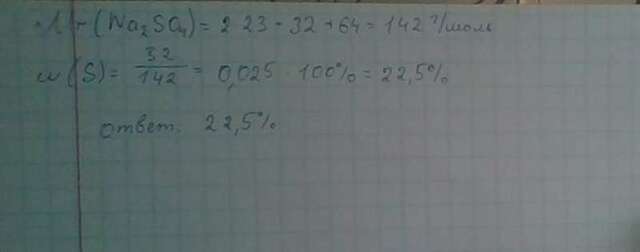 Mr (Na₂SO₄) = 2·23 + 32 + 64 = 142 г/моль
w(S) = 32/142 = 0,025 · 100% = 22,5%
ответ. 22,5%